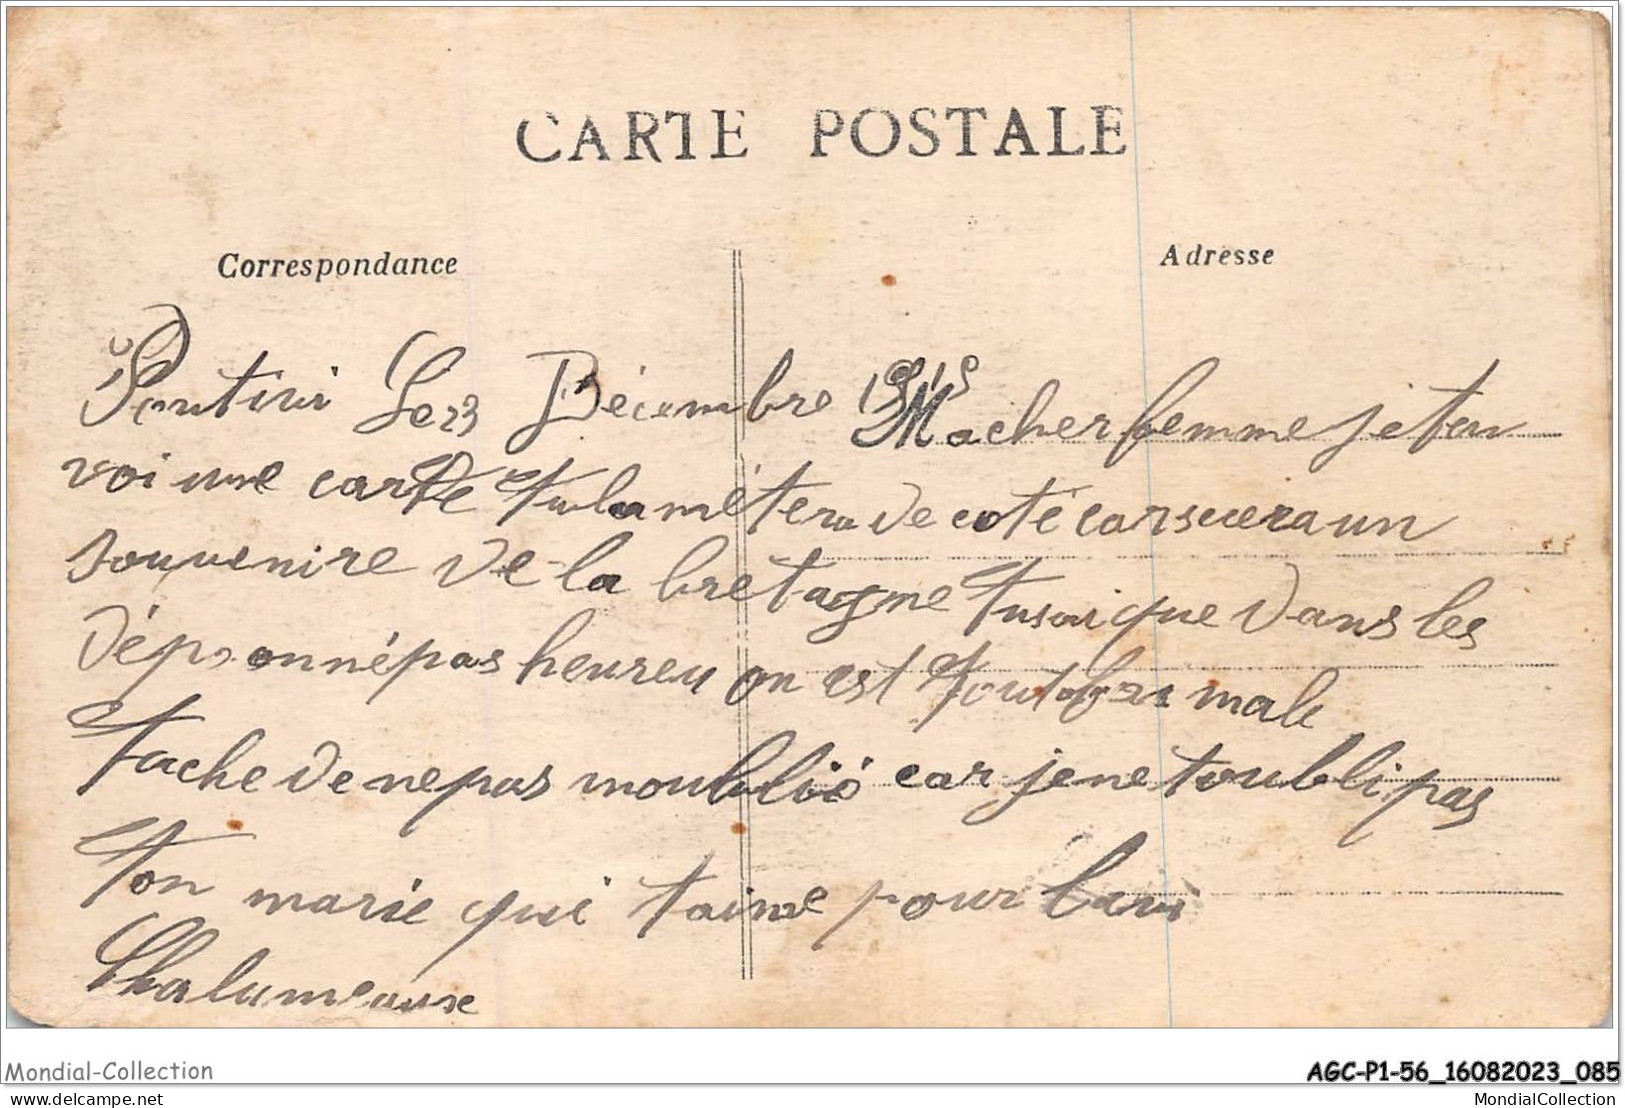 CARTE POSTALE
Correspondance
Adresse
Pontivi Le 23 Décembre 1915 Macher femme jeten
voi une carte tula métera de coté car sceera un
souvenire de la bretagne tusai que dans les
dépo on népas heureu on est toutafai male
tache de nepas moublié car jene toubli pas
ton marie qui taime pour la vi
Chalumeause
Mondial-Collection
AGC-P1-56_16082023_085
delcampe.net
MondialCollection